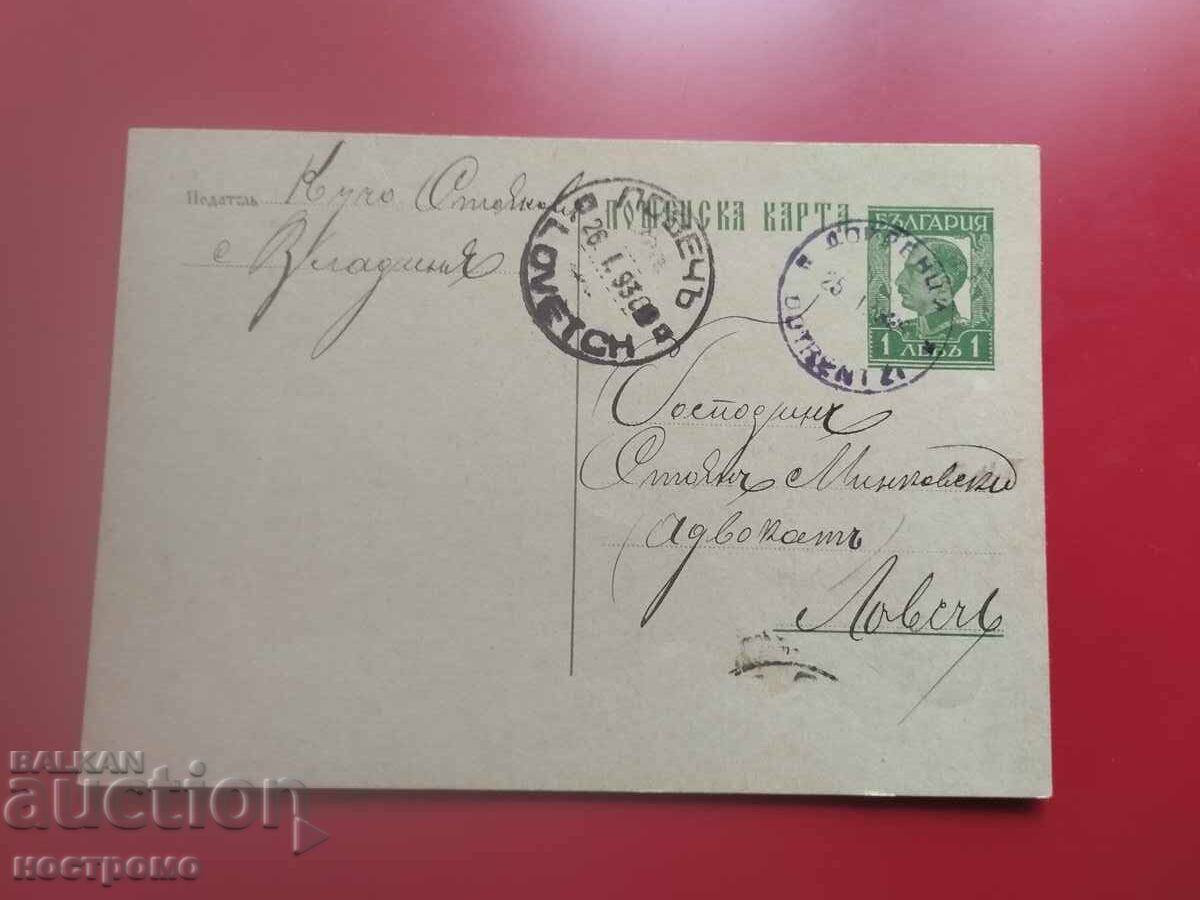 Податель Кучо Стоянов
с Владиня
ПОЩЕНСКА КАРТА
БЪЛГАРИЯ
1 ЛЕВЪ 1
ЛОВЕЧЪ
26.I.93
LOVETCH
ДОЙРЕНЦИ
25.I
DOIRENTZI
Господинъ
Стоянъ Минковски
(Адвокатъ)
Ловечъ
BALKAN
auction
ностромо